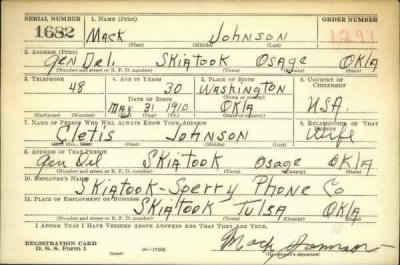 SERIAL NUMBER 1. NAME (Print) ORDER NUMBER
1682 Mack Johnson 1291
(First) (Middle) (Last)
2. ADDRESS (Print)
Gen Del. Skiatook Osage Okla
(Number and street or R. F. D. number) (Town) (County) (State)
3. TELEPHONE 4. AGE IN YEARS 5. PLACE OF BIRTH 6. COUNTRY OF CITIZENSHIP
48 30 Washington
DATE OF BIRTH (Town or county)
May 31 1910 Okla USA.
(Mo.) (Day) (Yr.) (State or country)
7. NAME OF PERSON WHO WILL ALWAYS KNOW YOUR ADDRESS 8. RELATIONSHIP OF THAT PERSON
Cletis Johnson Wife
(First) (Middle) (Last)
9. ADDRESS OF THAT PERSON
Gen Del Skiatook Osage Okla
(Number and street or R. F. D. number) (Town) (County) (State)
10. EMPLOYER'S NAME
Skiatook-Sperry Phone Co
11. PLACE OF EMPLOYMENT OR BUSINESS
Skiatook Tulsa Okla
(Number and street or R. F. D. number) (Town) (County) (State)
I AFFIRM THAT I HAVE VERIFIED ABOVE ANSWERS AND THAT THEY ARE TRUE.
REGISTRATION CARD Mack Johnson
D. S. S. Form 1 (over) (Registrant's signature)